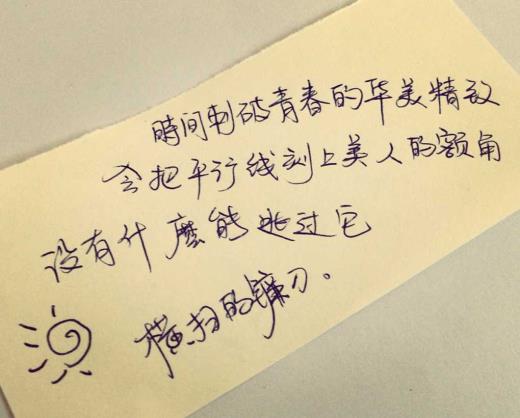 時间刺破青春的华美精致
会把平行线刻上美人的额角
没有什麽能逃过它
横扫的镰刀。